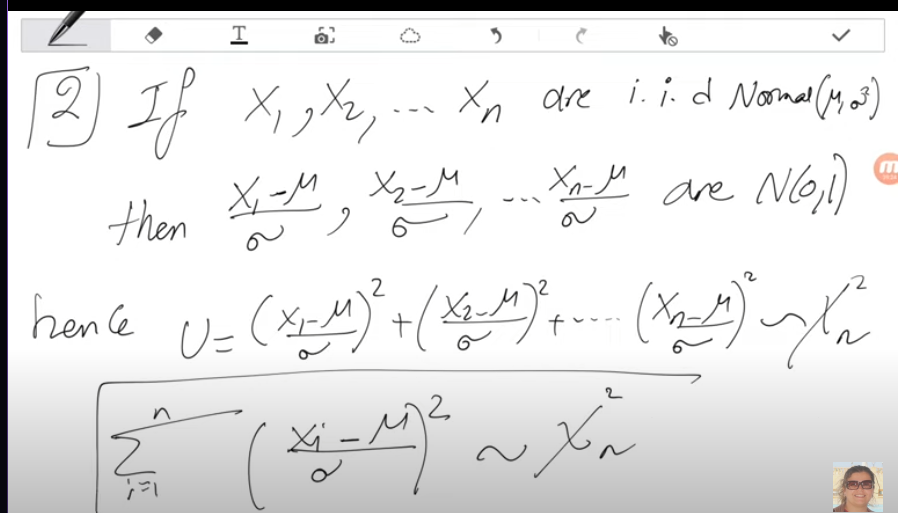 [2] If X₁, X₂, ... Xₙ are i.i.d Normal(μ, σ²)
then (X₁-μ)/σ, (X₂-μ)/σ, ... (Xₙ-μ)/σ are N(0,1)
hence U = ((X₁-μ)/σ)² + ((X₂-μ)/σ)² + ---- ((Xₙ-μ)/σ)² ~ χ²ₙ
∑ᵢ₌₁ⁿ ((Xᵢ-μ)/σ)² ~ χ²ₙ